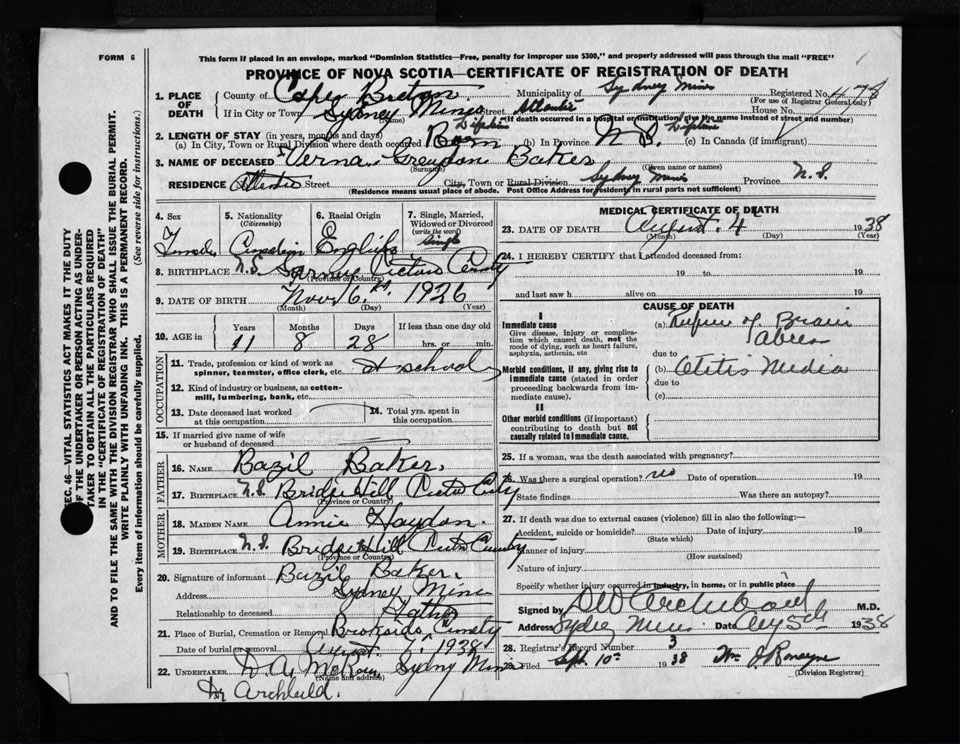 FORM 6
This form if placed in an envelope, marked "Dominion Statistics—Free, penalty for improper use $300," and properly addressed will pass through the mail "FREE"
PROVINCE OF NOVA SCOTIA—CERTIFICATE OF REGISTRATION OF DEATH
SEC. 46—VITAL STATISTICS ACT MAKES IT THE DUTY
OF THE UNDERTAKER OR PERSON ACTING AS UNDER-
TAKER TO OBTAIN ALL THE PARTICULARS REQUIRED
IN THE "CERTIFICATE OF REGISTRATION OF DEATH"
AND TO FILE THE SAME WITH THE DIVISION REGISTRAR WHO SHALL ISSUE THE BURIAL PERMIT.
WRITE PLAINLY WITH UNFADING INK. THIS IS A PERMANENT RECORD.
Every item of information should be carefully supplied. (See reverse side for instructions.)
1. PLACE OF DEATH County of Cape Breton Municipality of Sydney Mines Registered No. 478
(For use of Registrar General only)
If in City or Town Sydney Mines Street Atlantic House No.
(Name) (If death occurred in a hospital or institution, give the name instead of street and number)
2. LENGTH OF STAY (in years, months and days)
(a) In City, Town or Rural Division where death occurred Born (b) In Province N.S. (c) In Canada (if immigrant)
3. NAME OF DECEASED Verna Baker
(Surname) (Given name or names)
RESIDENCE Atlantic Street City, Town or Rural Division Sydney Mines Province N.S.
(Residence means usual place of abode. Post Office Address for residents in rural parts not sufficient)
4. Sex 5. Nationality (Citizenship) 6. Racial Origin 7. Single, Married, Widowed or Divorced (write the word) Single
Female Canadian English
8. BIRTHPLACE N.S. Pictou County
(Province or Country)
9. DATE OF BIRTH Nov 6 1926
(Month) (Day) (Year)
10. AGE in Years Months Days If less than one day old
11 8 28 hrs. or min.
OCCUPATION
11. Trade, profession or kind of work as spinner, teamster, office clerk, etc. At school
12. Kind of industry or business, as cotton-mill, lumbering, bank, etc.
13. Date deceased last worked at this occupation 14. Total yrs. spent in this occupation
15. If married give name of wife or husband of deceased
FATHER
16. NAME Bazil Baker
17. BIRTHPLACE N.S. Bridgehill
(Province or Country)
MOTHER
18. MAIDEN NAME Annie Haydon.
19. BIRTHPLACE N.S. Bridge Hill County
(Province or Country)
20. Signature of informant Bazil Baker
Address Sydney Mines
Relationship to deceased Father
21. Place of Burial, Cremation or Removal Brookside
Date of burial or removal August 6, 1938
22. UNDERTAKER D A Sydney Mines
(Name and address)
Dr Archibald.
MEDICAL CERTIFICATE OF DEATH
23. DATE OF DEATH August 4 1938
(Month) (Day) (Year)
24. I HEREBY CERTIFY that I attended deceased from:
19 to 19
and last saw h alive on 19
CAUSE OF DEATH
I
Immediate cause
Give disease, injury or complication which caused death, not the mode of dying, such as heart failure, asphyxia, asthenia, etc
(a) Rupture of Brain Abcess
due to
Morbid conditions, if any, giving rise to immediate cause (stated in order proceeding backwards from immediate cause).
(b) Otitis Media
due to
(c)
II
Other morbid conditions (if important) contributing to death but not causally related to immediate cause.
25. If a woman, was the death associated with pregnancy?
26. Was there a surgical operation? no Date of operation 19
State findings Was there an autopsy?
27. If death was due to external causes (violence) fill in also the following:—
Accident, suicide or homicide? Date of injury 19
(State which)
Manner of injury
(How sustained)
Nature of injury
Specify whether injury occurred in industry, in home, or in public place
Signed by Archibald M.D.
Address Sydney Mines Date Aug 5th 1938
28. Registrar's Record Number 3
29. Filed Sept. 10th 1938 Wm J Romayne
(Division Registrar)